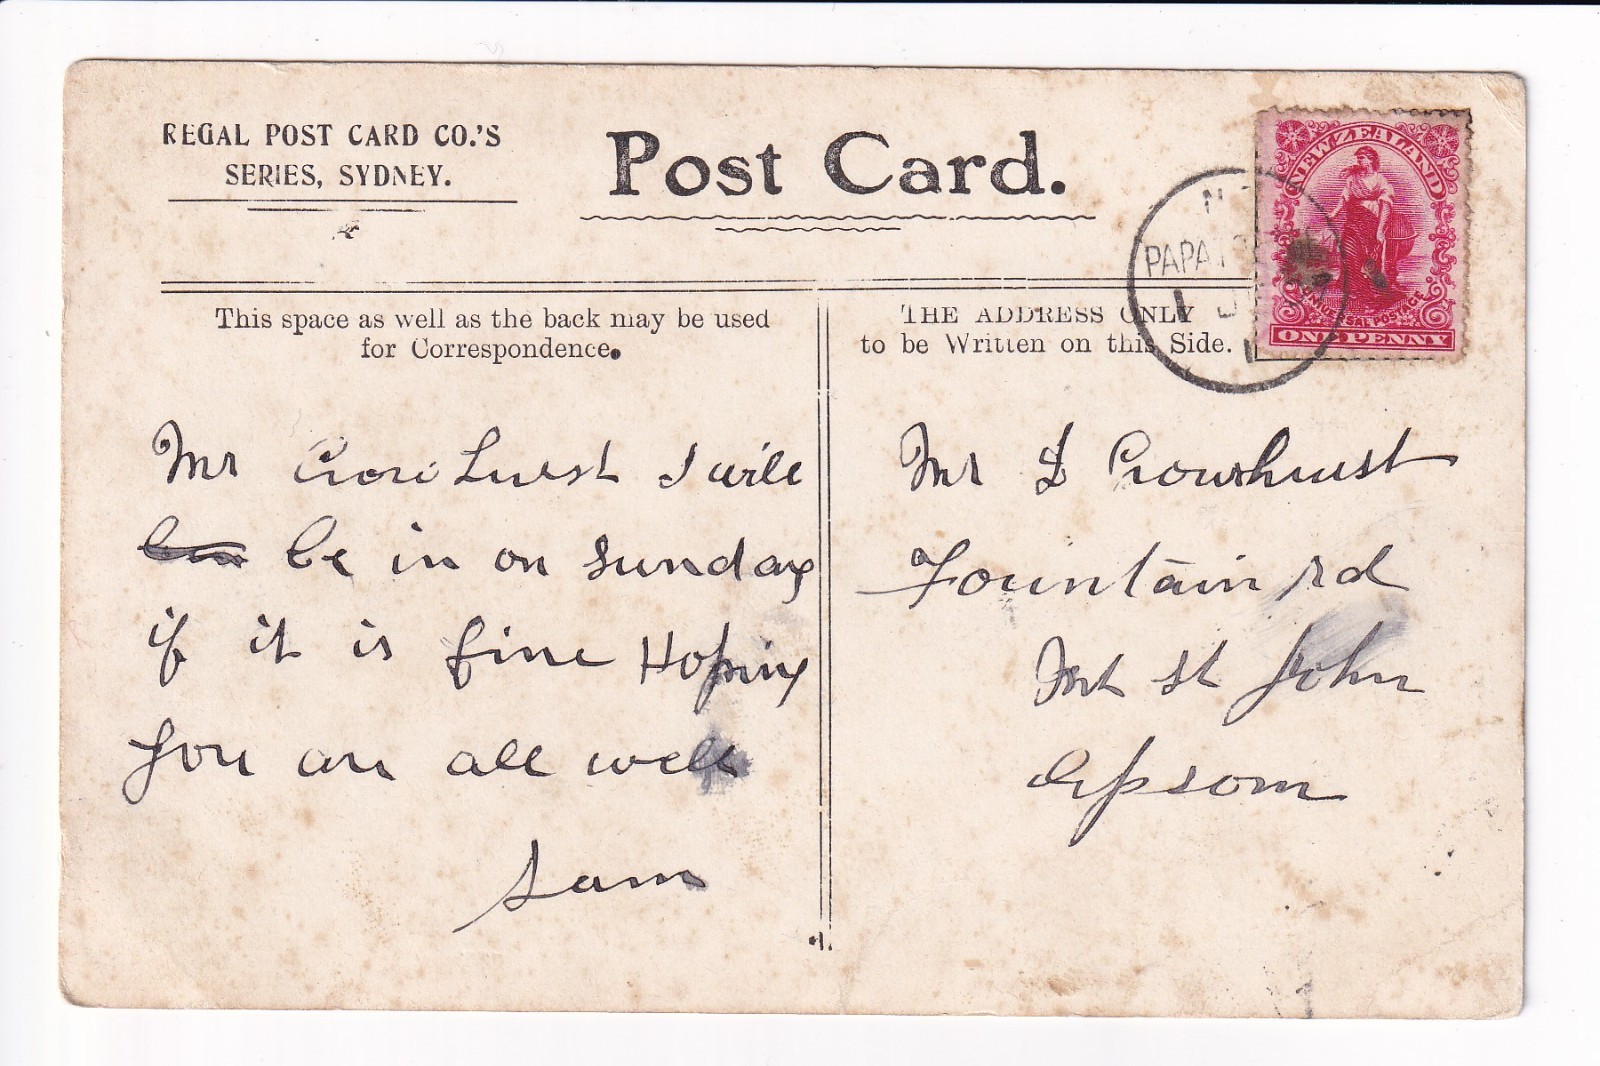 REGAL POST CARD CO.'S
SERIES, SYDNEY.
Post Card.
This space as well as the back may be used
for Correspondence.
THE ADDRESS ONLY
to be Written on this Side.
NEW ZEALAND
UNIVERSAL POSTAGE
ONE PENNY
Mr Crowhurst I will
be in on Sunday
if it is fine Hoping
you are all well
Sam
Mr Crowhurst
Fountain rd
Mt St John
Epsom